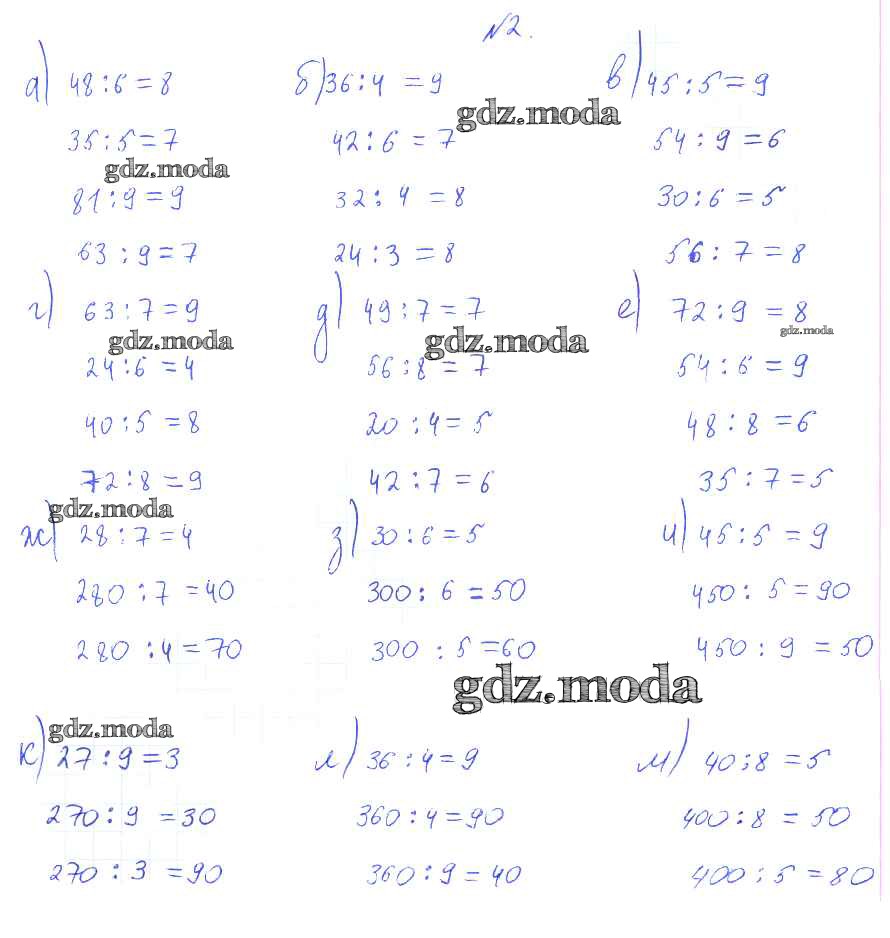 №2.
а) 48:6=8 б) 36:4=9 в) 45:5=9
gdz.moda
35:5=7 42:6=7 54:9=6
gdz.moda
81:9=9 32:4=8 30:6=5
63:9=7 24:3=8 56:7=8
г) 63:7=9 д) 49:7=7 е) 72:9=8
gdz.moda gdz.moda gdz.moda
24:6=4 56:8=7 54:6=9
40:5=8 20:4=5 48:8=6
72:8=9 42:7=6 35:7=5
gdz.moda
ж) 28:7=4 з) 30:6=5 и) 45:5=9
280:7=40 300:6=50 450:5=90
280:4=70 300:5=60 450:9=50
gdz.moda
gdz.moda
к) 27:9=3 л) 36:4=9 м) 40:8=5
270:9=30 360:4=90 400:8=50
270:3=90 360:9=40 400:5=80